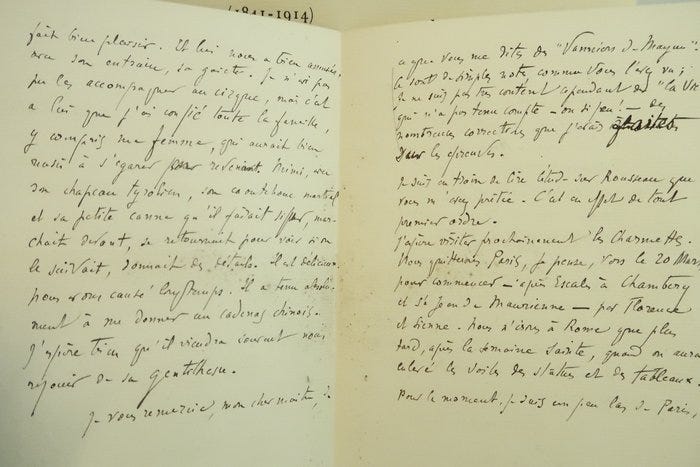 (1841-1914)
fait bien plaisir. Et lui nous a bien amusés,
avec son entrain, sa gaieté. Je n'ai pas
pu les accompagner au cirque, mais c'est
à lui que j'ai confié toute la famille,
y compris ma femme, qui aurait bien
réussi à s'égarer pour revenir. Mimi, avec
son chapeau tyrolien, son caoutchouc martial
et sa petite canne qu'il faisait siffler, mar-
chait devant, se retournait pour voir si on
le suivait, donnait des détails. Il est délicieux.
nous avons causé longtemps. Il a tenu absolu-
ment à me donner un cadenas chinois.
J'espère bien qu'il viendra souvent nous
réjouir de sa gentillesse.
Je vous remercie, mon cher maître, de
ce que vous me dites des "Vanniers de Mayun".
Ce sont de simples notes comme vous l'avez vu ;
Je ne suis pas très content cependant de "La Vie"
qui n'a pas tenu compte - ou si peu! - des
nombreuses corrections que j'avais faites
sur les épreuves.
Je suis en train de lire l'étude sur Rousseau que
vous m'avez prêtée. C'est en effet de tout
premier ordre.
J'espère visiter prochainement les Charmettes.
Nous quitterons Paris, je pense, vers le 20 Mars,
pour commencer - après Escales à Chambéry
et St Jean de Maurienne - par Florence
et Sienne. Nous n'irons à Rome que plus
tard, après la semaine Sainte, quand on aura
enlevé les voiles des statues et des tableaux
Pour le moment, je suis un peu las de Paris,